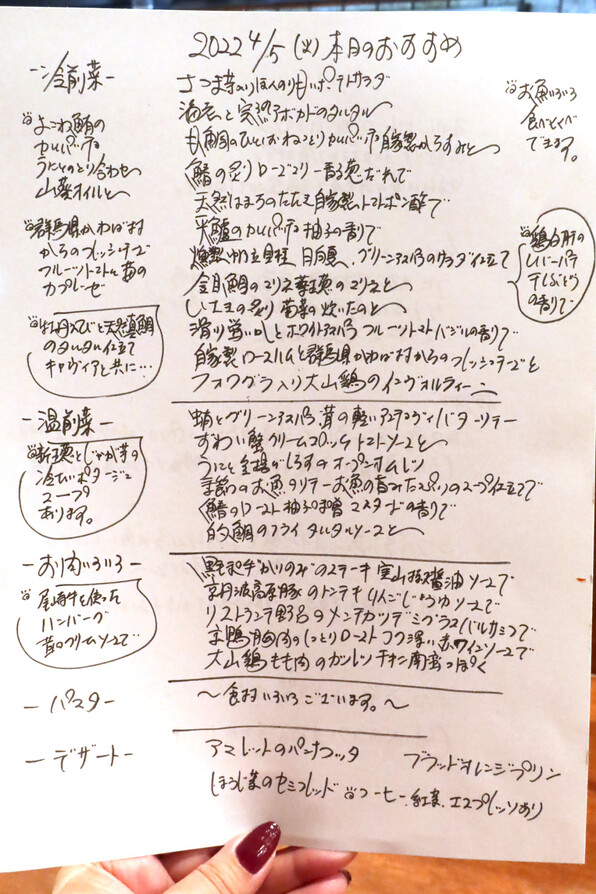 2022 4/5 (火) 本日のおすすめ
-冷前菜-
さつま芋入りほんのり甘いポテトサラダ
海老と完熟アボカドのタルタル
甘鯛のひとおねつとりカルパッチョ自家製からすみと
鰆の炙り ローズマリー香る葱だれで
天然はまちのたたき自家製トマトポン酢で
平鱸のカルパッチョ柚子の香りで
燻製帆立貝柱、目向夏、グリーンアスパラのサラダ仕立て
金目鯛のマリネ葉玉葱のマリネと
しいたまの炙り 菊菜の炊いたのと
滑り蛍いかとホワイトアスパラ フルーツトマト バジルの香りで
自家製ロースハムと群馬県かわば村からのフレッシュチーズと
フォワグラ入り大山鶏のインヴォルティーニ
よこわ鮪の
カルパッチョ
うにとのとり合わせ
山菜オイルと
群馬県かわば村
からのフレッシュチーズ
フルーツトマト 苺の
カプレーゼ
牡丹えびと天然真鯛
のタルタル仕立て
キャヴィアと共に…
お魚いろいろ
食べくらべ
できます。
鶏白肝の
レバーパテ
干しぶどう
の香りで
-温前菜-
蛸とグリーンアスパラ、茸の軽いアンチョヴィバターソテー
ずわい蟹クリームコロッケ トマトソースと
うにと釜揚げしらすのオープンオムレツ
季節のお魚のソテーお魚の旨みたっぷりのスープ仕立てで
鰆のロースト 柚子味噌マスタードの香りで
的鯛のフライ タルタルソースと
新玉葱とじゃが芋の
冷たいポタージュ
スープ
あります。
-お肉いろいろ-
ステーキ 実山椒醤油ソースで
京丹波高原豚のトンテキ りんごしょうゆソースで
リストランテ野呂のメンチカツ デミグラスバルサミコで
京鴨胸肉のしっとりロースト コク深い赤ワインソースで
大山鶏もも肉のカツレツ チキン南蛮っぽく
尾崎牛を使った
ハンバーグ
茸のクリームソースで
-パスタ-
〜食材いろいろございます。〜
-デザート-
アマレットのパンナコッタ
ブラッドオレンジプリン
ほうじ茶のセミフレッド
コーヒー、紅茶、エスプレッソあり